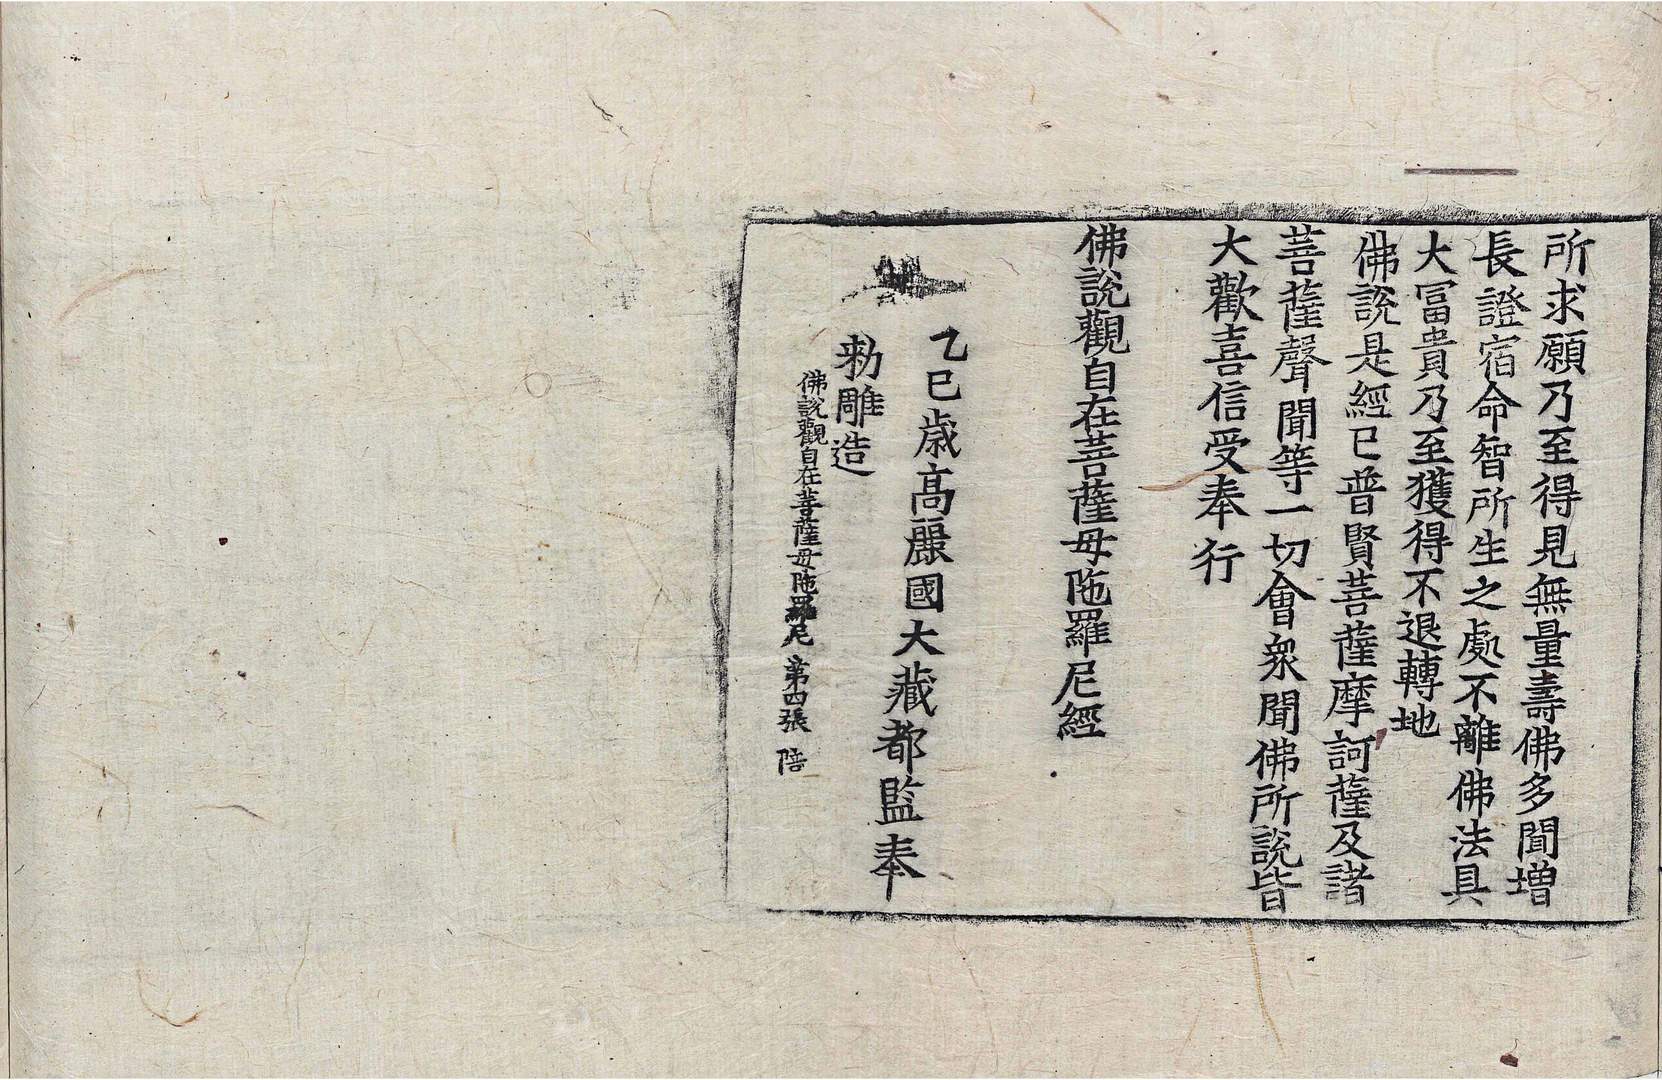 所求願乃至得見無量壽佛多聞增
長證宿命智所生之處不離佛法具
大冨貴乃至獲得不退轉地
佛說是經已普賢菩薩摩訶薩及諸
菩薩聲聞等一切會衆聞佛所說皆
大歡喜信受奉行
佛說觀自在菩薩母陁羅尼經
乙巳歳高麗國大藏都監奉
勅雕造
佛說觀自在菩薩母陁羅尼 第四張 陪